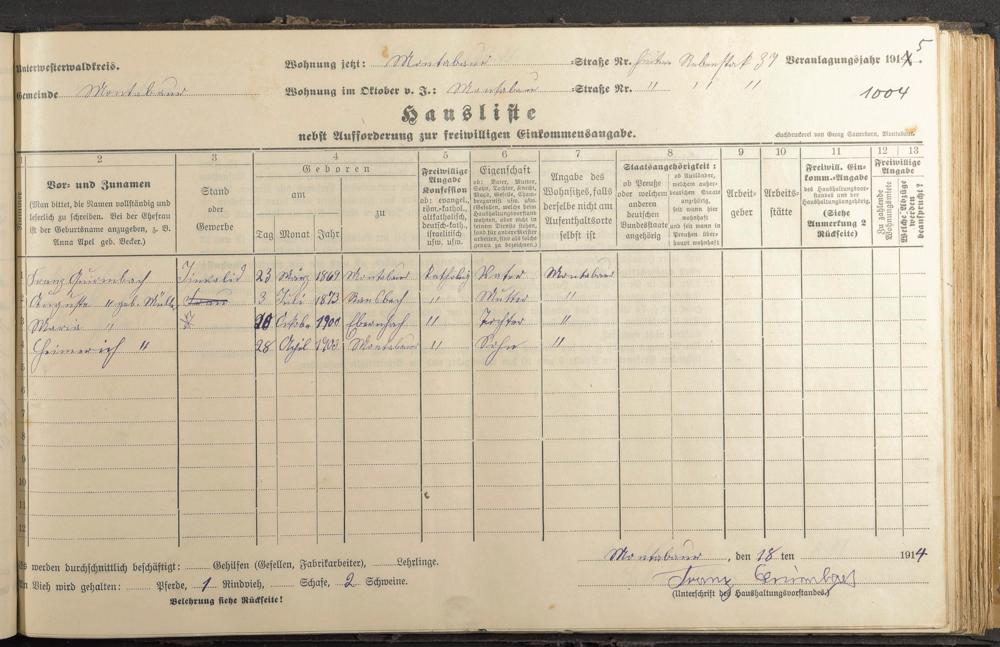 Unterwesterwaldkreis. Wohnung jetzt: Montabaur =Straße Nr. 37 Veranlagungsjahr 191 5
Gemeinde Montabaur Wohnung im Oktober v. J.: Montabaur =Straße Nr. " " " 1004
Hausliste
nebst Aufforderung zur freiwilligen Einkommensangabe.
Buchdruckerei von Georg Sauerborn, Montabaur.
1 2 3 4 5 6 7 8 9 10 11 12 13
Vor- und Zunamen
(Man bittet, die Namen vollständig und
leserlich zu schreiben. Bei der Ehefrau
ist der Geburtsname anzugeben, z. B.
Anna Apel geb. Becker.)
Stand
oder
Gewerbe
Geboren
am
zu
Tag Monat Jahr
Freiwillige
Angabe
Konfession
ob: evangel.,
röm.-kathol.,
altkatholisch,
deutsch-kath.,
israelitisch,
usw. usw.
Eigenschaft
ob: Vater, Mutter,
Sohn, Tochter, Knecht,
Magd, Geselle,
Angabe des
Wohnsitzes, falls
derselbe nicht am
Aufenthaltsorte
selbst ist
Staatsangehörigkeit:
ob Preuße
oder welchem
anderen
deutschen
Bundesstaate
angehörig
ob Ausländer,
welchem außer-
deutschen Staate
angehörig,
seit wann hier
wohnhaft
und seit wann in
Preußen über-
haupt wohnhaft
Arbeit-
geber
Arbeits-
stätte
Freiwill. Ein-
komm.-Angabe
des Haushaltungsvor-
standes und der
Haushaltungsangehörig.
(Siehe
Anmerkung 2
Rückseite)
Freiwillige
Angabe
Zu zahlende
Wohnungsmiete
Welche Abzüge
werden
beansprucht?
1 Franz Invalid 23 März 1869 Montabaur Katholisch Vater Montabaur
2 Auguste " geb. Müller Frau 3 Juli 1873 Ransbach " Mutter "
3 Maria " " Tochter "
4 " 28 April Montabaur " Sohn "
5
6
7
8
9
10
11
12
Es werden durchschnittlich beschäftigt: Gehilfen (Gesellen, Fabrikarbeiter), Lehrlinge.
An Vieh wird gehalten: Pferde, 1 Rindvieh, Schafe, 2 Schweine.
Belehrung siehe Rückseite!
Montabaur, den 18 ten 1914
Franz
(Unterschrift des Haushaltungsvorstandes.)